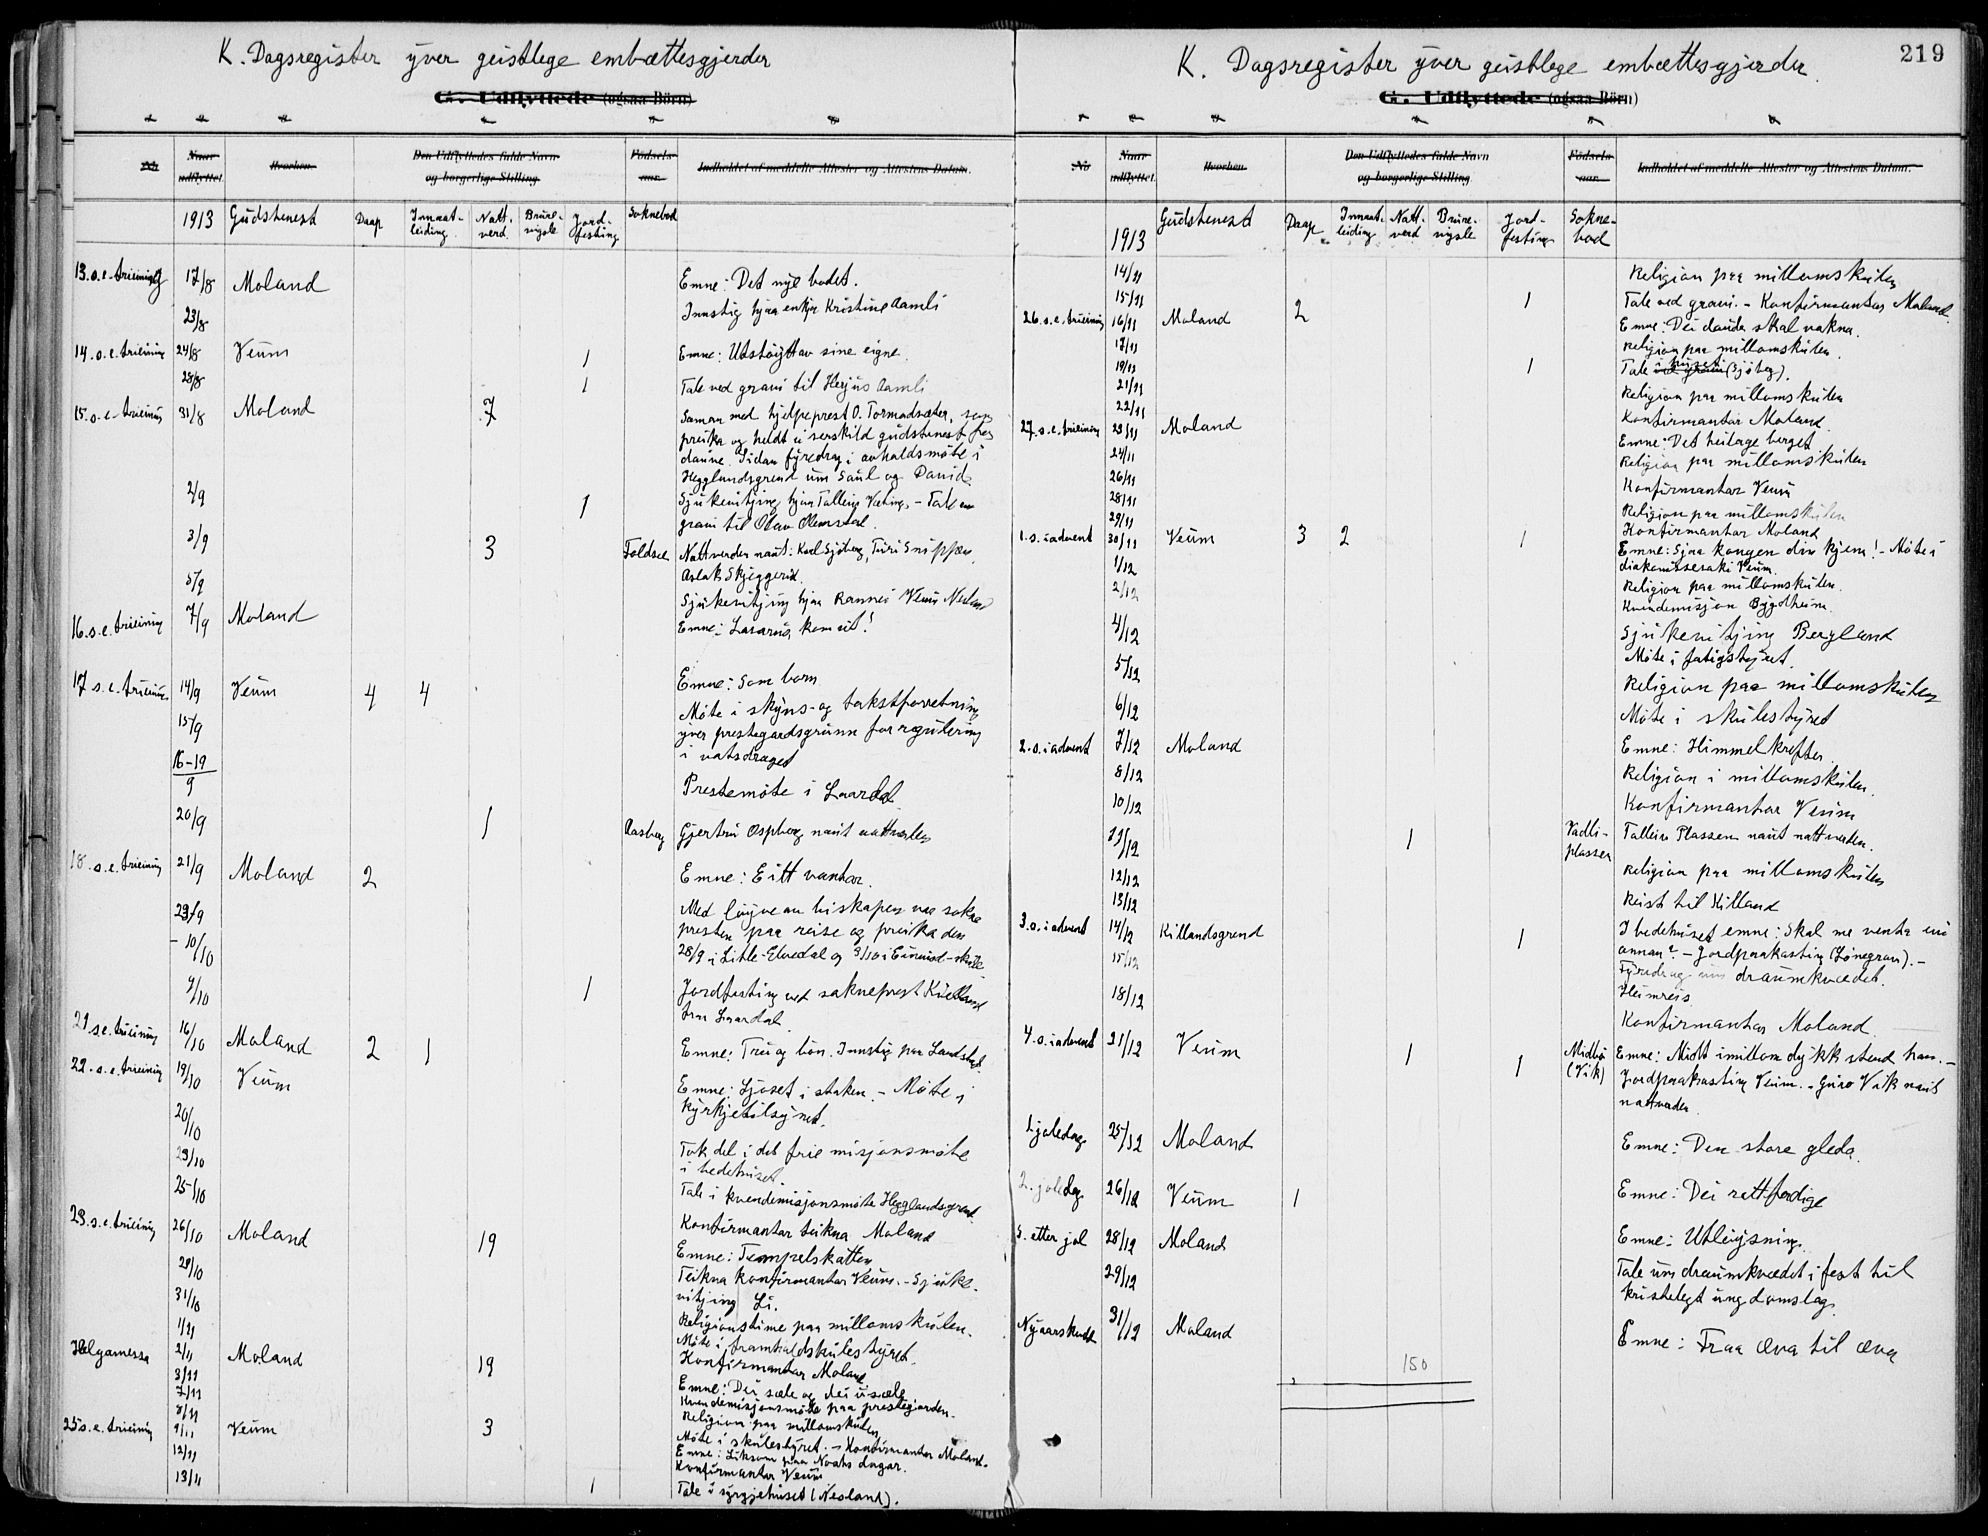 K. Dagsregister yver geistlege embættesgjerder
G. Udflyttede (ogsaa Børn)
No Naar udflyttet. Hvorhen Den Udflyttedes fulde Navn og borgerlige Stilling Fødsels-aar. Indholdet af meddelte Attester og Attestens Datum.
1913 Gudstenest Daap Innaat-leiding Natt-verd Brure-vigsle Jord-festing Soknebod
13. s. e. trieining 17/8 Moland Emne: Det nye bodet.
23/8 Innstig hjaa enkja Kristine Aamli
14. s. e. trieining 24/8 Veum 1 Emne: Utstøytt av sine eigne.
28/8 1 Tale ved gravi til Herjus Aamli
15. s. e. trieining 31/8 Moland 7 Saman med hjelpeprest O. Tormodsæter, som
preika og heldt ei serskild gudstenest for
dauve. Sidan fyredrag i avhaldsmøte i
Hegglandsgrend um Saul og David.
2/9 1 Sjukevitjing hjaa Talleiv - Tale
gravi til Olav
3/9 3 Foldsæ Nattverden naut: Karl Sjøberg, Turi
Aslak Skjeggerud.
5/9 Sjukevitjing hjaa Rannei Veum
16. s. e. trieining 7/9 Moland Emne: Lasarus kom ut!
17 s. e. trieining 14/9 Veum 4 4 Emne: Som born
15/9 Møte i skyns- og takstforretning
yver prestegardsgrunn for regulering
i vatsdraget
16-19/9 Prestemøte i Laardal
20/9 1 Aasberg Gjertru Ospberg naut nattverden
18. s. e. trieining 21/9 Moland 2 Emne: Eitt vantar.
23/9 Med løyve av biskopen var sokne
- 10/10 presten paa reise og preika den
28/9 i Litle-Elvedal og 3/10 i
9/10 1 Jordfesting ved sokneprest
fraa Laardal.
21. s. e. trieining 16/10 Moland 2 1 Emne: Tru og bøn. Innstig paa
22. s. e. trieining 19/10 Veum Emne: Ljoset i staken. - Møte i
kyrkjetilsynet.
20/10
23/10 Tok del i det frie misjonsmøte
i bedehuset.
25/10 Tale i kvendemisjonsmøte Hegglandsgrend.
23. s. e. trieining 26/10 Moland 19 Konfirmantar teikna Moland
Emne: Tempelskatten
29/10 Teikna konfirmantar Veum. - Sjuke-
31/10 vitjing Li.
1/11 Religionstime paa millomskulen.
Helgamessa 2/11 Moland 19 Møte i framhaldskulestyret.
3/11 Konfirmantar Moland
7/11 Emne: Dei sæle og dei usæle
8/11 Kvendemisjonsmøte paa prestegarden.
25 s. e. trieining 9/11 Veum 3 Religion paa millomskulen
Møte i skulestyret. - Konfirmantar Moland.
12/11 Emne: Liksom paa Noahs dagar.
13/11 Konfirmantar Veum
1 Tale i syrgjehuset (Nesland).
K. Dagsregister yver geistlege embættesgjerder.
219
G. Udflyttede (ogsaa Børn)
No Naar udflyttet. Hvorhen Den Udflyttedes fulde Navn og borgerlige Stilling Fødsels-aar. Indholdet af meddelte Attester og Attestens Datum.
1913 Gudstenest Daap Innaat-leiding Natt-verd Brure-vigsle Jord-festing Sokne-bod
14/11 Religion paa millomskulen
15/11 1 Tale ved gravi. - Konfirmantar Moland.
26. s. e. trieining 16/11 Moland 2 Emne: Dei daude skal vakna.
17/11 Religion paa millomskulen.
19/11 1 Tale ved gravi i huset (Sjøberg).
21/11 Religion paa millomskulen
22/11 Konfirmantar Moland.
27. s. e. trieining 23/11 Moland Emne: Det heilage berget
24/11 Religion paa millomskulen
26/11 Konfirmantar Veum
28/11 Religion paa millomskulen
29/11 Konfirmantar Moland
1. s. i advent 30/11 Veum 3 2 1 Emne: Sjaa kongen din kjem! - Møte i
diakonissesaki Veum.
1/12 Religion paa millomskulen.
2/12 Kvendemisjon Bygdheim.
4/12 Sjukevitjing Bergland
5/12 Møte i fatigstyret.
Religion paa millomskulen
6/12 Møte i skulestyret
2. s. i advent 7/12 Moland Emne: Himmelkrefter.
8/12 Religion i millomskulen.
10/12 Konfirmantar Veum
11/12 1 Vadli-plassen Talleiv Plassen naut nattverden.
12/12 Religion paa millomskulen
13/12 Reist til Killand
3. s. i advent 14/12 Killandsgrend 1 I bedehuset emne: Skal me venta ein
15/12 annan? - Jordpaakasting (Lønegrav). -
Fyredrag um draumkvædet.
18/12 Heimreis.
Konfirmantar Moland.
4. s. i advent 21/12 Veum 1 1 Midbø (Vik) Emne: Midt imillom dykk stend han. -
Jordpaakasting Veum. - Guro Vik naut
nattverden.
1 joledag 25/12 Moland Emne: Den store gleda.
2. joledag 26/12 Veum 1 Emne: Dei rettferdige
S. etter jol 28/12 Moland Emne: Utløysning.
29/12 Tale um draumkvædet i fest til
kristelegt ungdomslag.
Nyaarskveld 31/12 Moland Emne: Fraa æva til æva
150